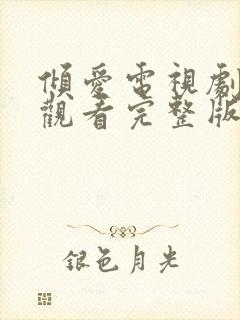 傾愛電視劇
觀看完整版
銀色月光